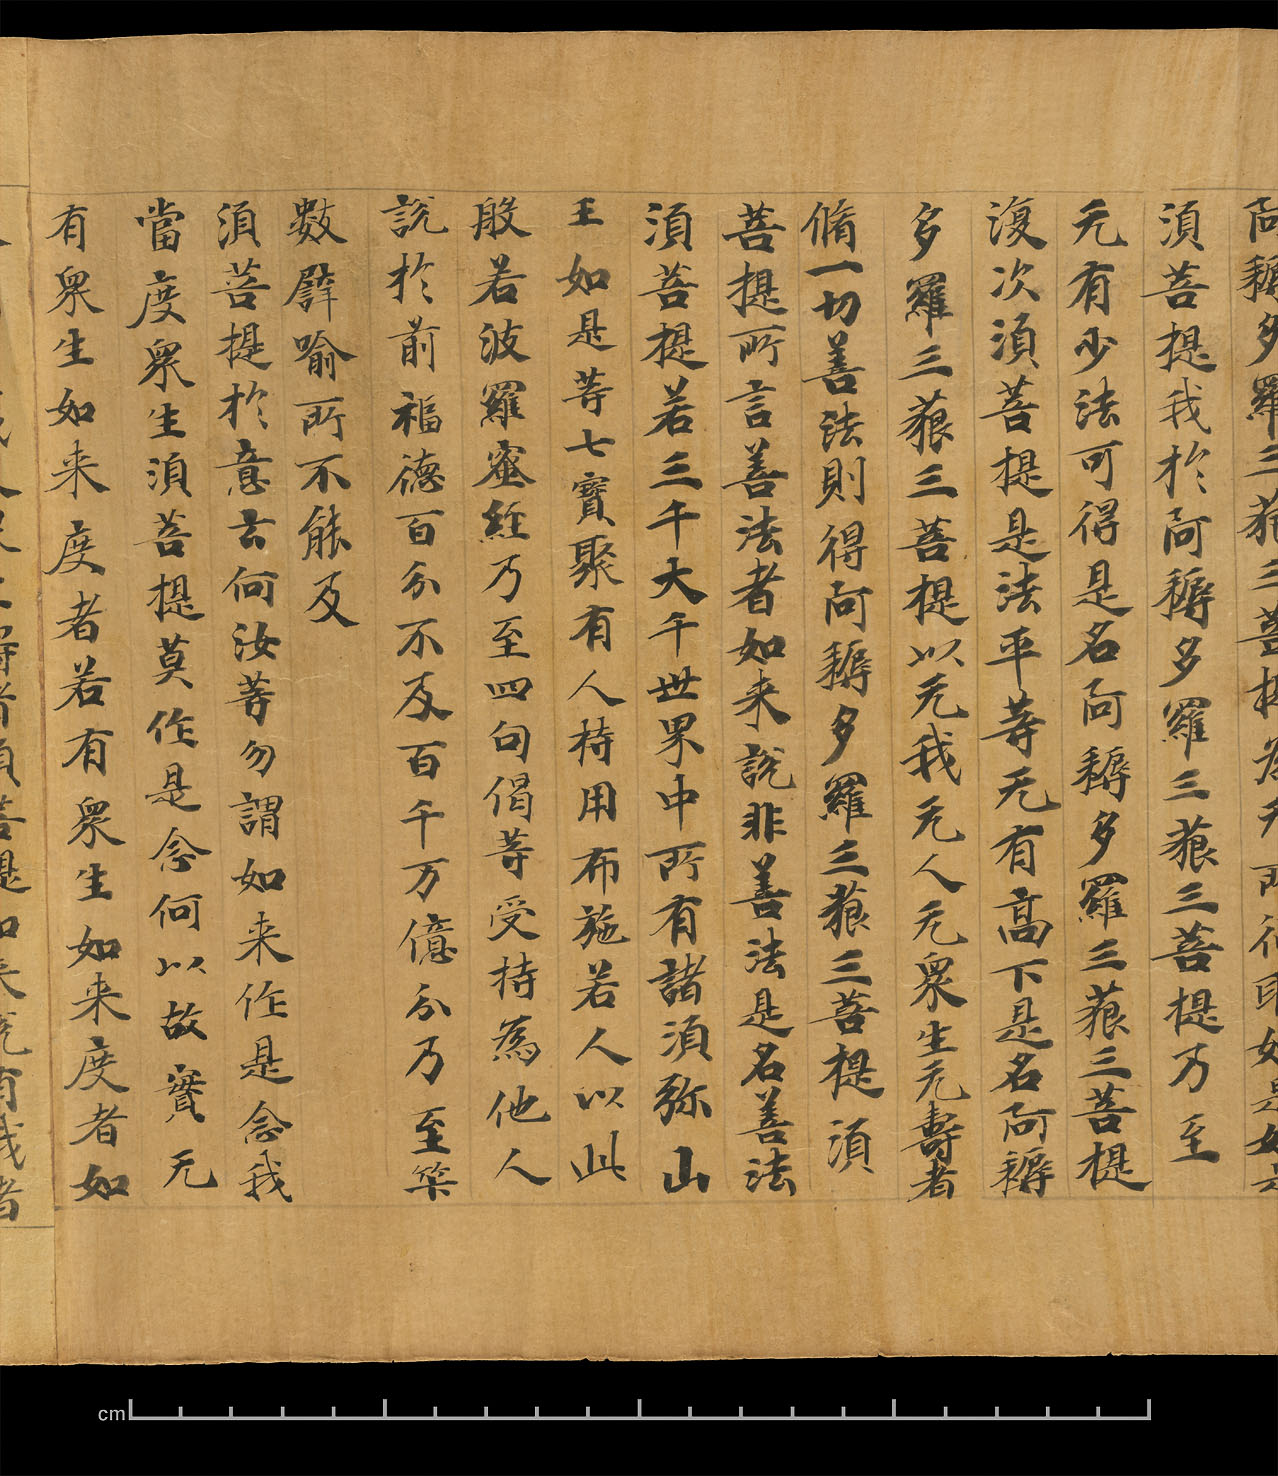 阿耨多羅三藐三菩提為无所得耶如是如是
須菩提我於阿耨多羅三藐三菩提乃至
无有少法可得是名阿耨多羅三藐三菩提
復次須菩提是法平等无有高下是名阿耨
多羅三藐三菩提以无我无人无衆生无壽者
脩一切善法則得阿耨多羅三藐三菩提須
菩提所言善法者如来說非善法是名善法
須菩提若三千大千世界中所有諸須弥山
王如是等七寶聚有人持用布施若人以此
般若波羅蜜經乃至四句偈等受持為他人
說於前福德百分不及百千万億分乃至筭
數譬喻所不能及
須菩提於意云何汝等勿謂如来作是念我
當度衆生須菩提莫作是念何以故實无
有衆生如来度者若有衆生如来度者如
須菩提如来說有我者
cm